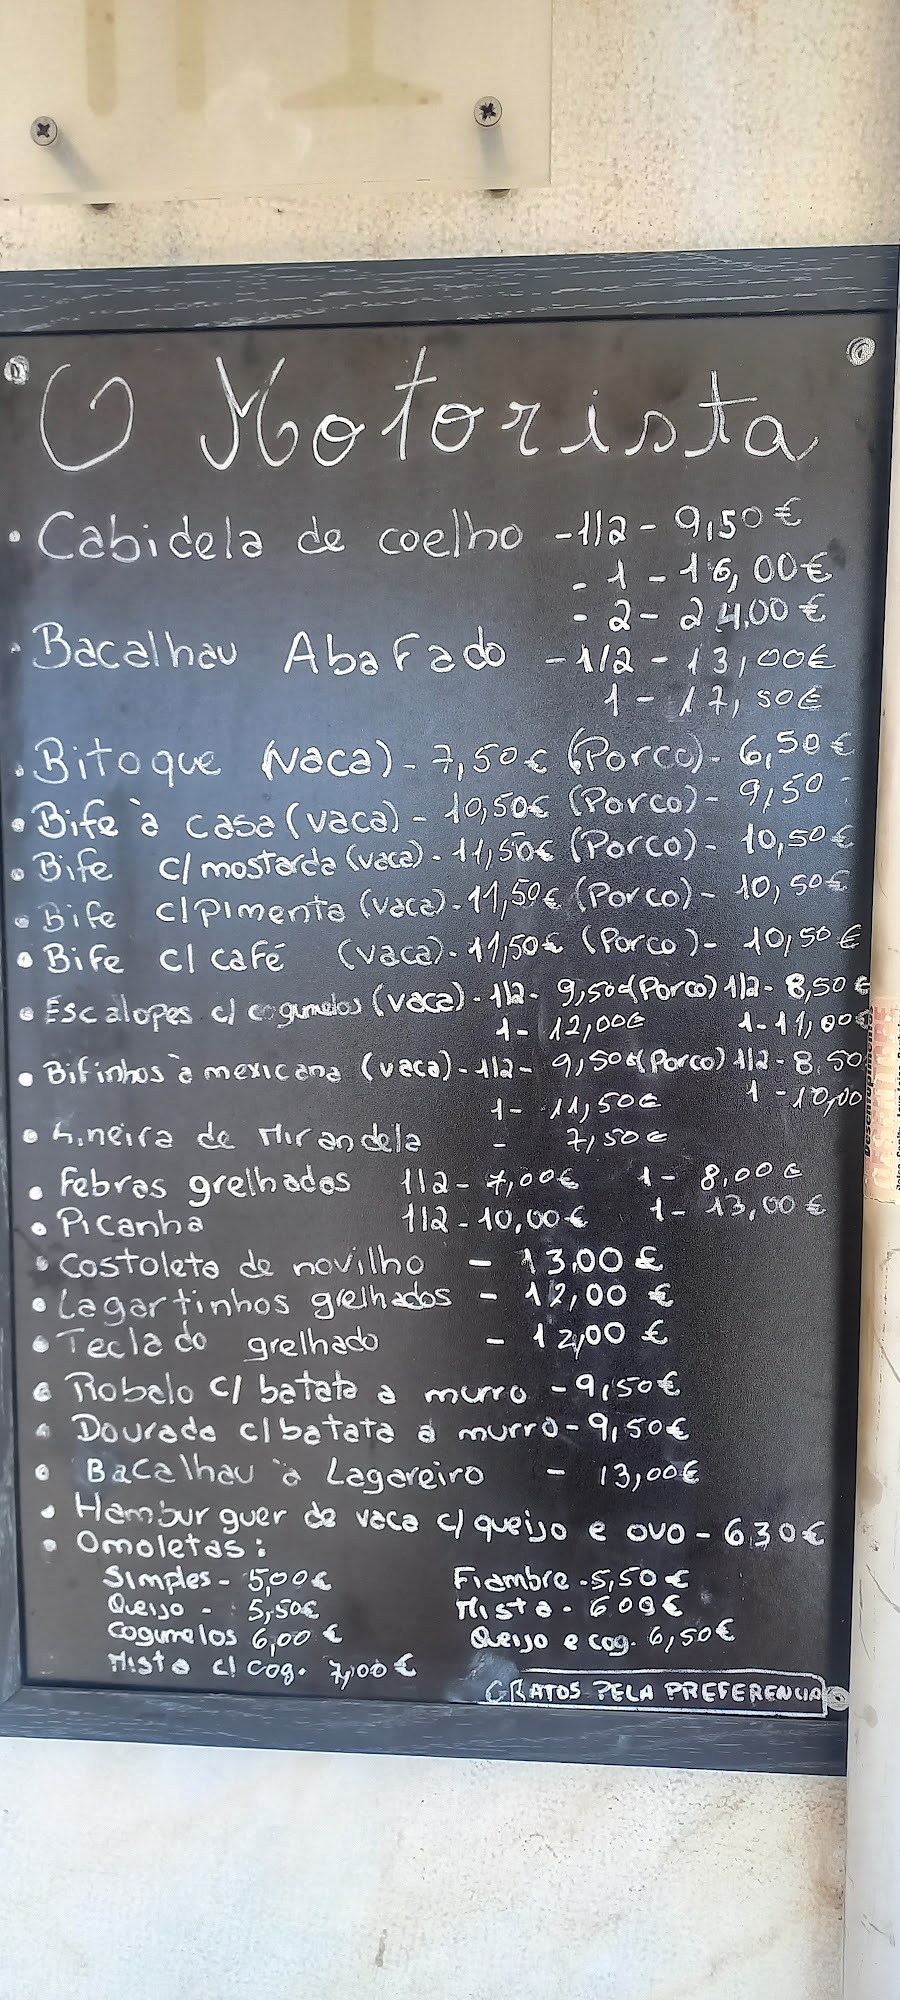 O Motorista
• Cabidela de coelho - 1/2 - 9,50€
- 1 - 16,00€
- 2 - 24,00€
• Bacalhau Abafado - 1/2 - 13,00€
1 - 17,50€
• Bitoque (Vaca) - 7,50€ (Porco) - 6,50€
• Bife à casa (vaca) - 10,50€ (Porco) - 9,50
• Bife c/ mostarda (vaca) - 11,50€ (Porco) - 10,50€
• Bife c/ pimenta (vaca) - 11,50€ (Porco) - 10,50€
• Bife c/ café (vaca) - 11,50€ (Porco) - 10,50€
• Escalopes c/ cogumelos (vaca) - 1/2 - 9,50€ (Porco) 1/2 - 8,50€
1 - 12,00€ 1 - 11,00€
• Bifinhos à mexicana (vaca) - 1/2 - 9,50€ (Porco) 1/2 - 8.50
1 - 11,50€ 1 - 10,00
• de Mirandela - 7,50€
• Febras grelhados 1/2 - 7,00€ 1 - 8,00€
• Picanha 1/2 - 10,00€ 1 - 13,00€
• Costoleta de novilho - 13,00€
• Lagartinhos grelhados - 12,00 €
• Teclado grelhado - 12,00 €
• Robalo c/ batata a murro - 9,50€
• Dourada c/ batata a murro - 9,50€
• Bacalhau à Lagareiro - 13,00€
• Hamburguer de vaca c/ queijo e ovo - 6,30€
• Omoletas:
Simples - 5,00€ Fiambre - 5,50€
Queijo - 5,50€ Mista - 6,00€
Cogumelos 6,00 € Queijo e cog. 6,50€
Mista c/ cog. 7,00€
GRATOS PELA PREFERENCIA